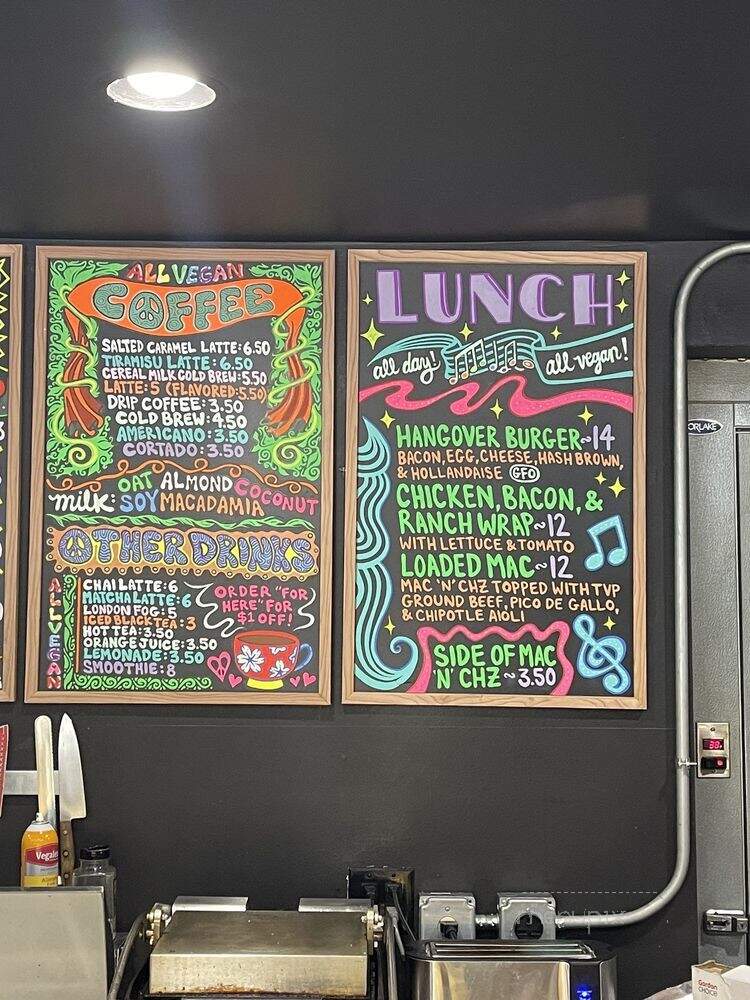 ALL VEGAN
COFFEE
SALTED CARAMEL LATTE: 6.50
TIRAMISU LATTE: 6.50
CEREAL MILK COLD BREW: 5.50
LATTE: 5 (FLAVORED: 5.50)
DRIP COFFEE: 3.50
COLD BREW: 4.50
AMERICANO: 3.50
CORTADO: 3.50
milk: OAT ALMOND COCONUT
SOY MACADAMIA
OTHER DRINKS
ALL VEGAN
CHAI LATTE: 6
MATCHA LATTE: 6
LONDON FOG: 5
ICED BLACK TEA: 3
HOT TEA: 3.50
ORANGE JUICE: 3.50
LEMONADE: 3.50
SMOOTHIE: 8
ORDER "FOR
HERE" FOR
$1 OFF!
LUNCH
all day! all vegan!
HANGOVER BURGER~14
BACON, EGG, CHEESE, HASH BROWN,
& HOLLANDAISE GFO
CHICKEN, BACON, &
RANCH WRAP~12
WITH LETTUCE & TOMATO
LOADED MAC~12
MAC 'N' CHZ TOPPED WITH TVP
GROUND BEEF, PICO DE GALLO,
& CHIPOTLE AIOLI
SIDE OF MAC
'N' CHZ ~ 3.50
ORLAKE
Gordon
CHOICE